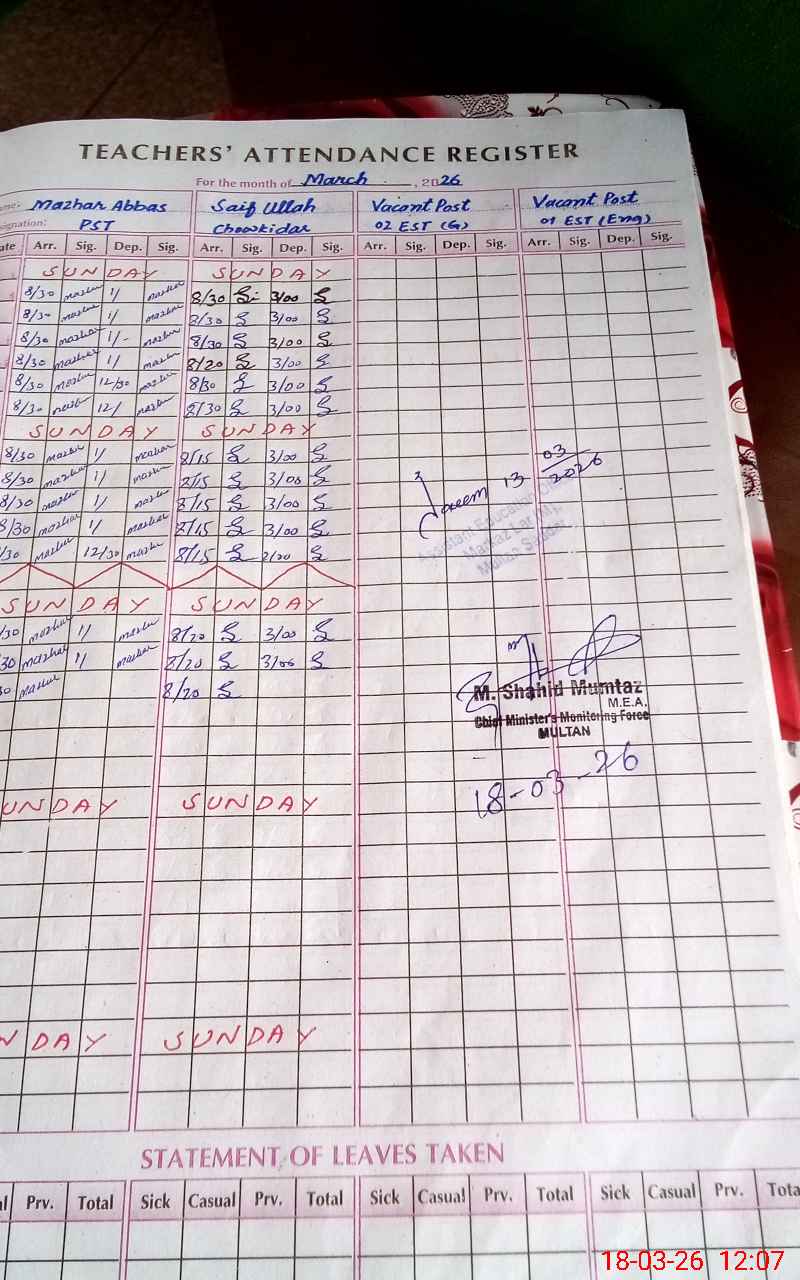 TEACHERS' ATTENDANCE REGISTER
For the month of March, 2026
Mazhar Abbas Saif Ullah Vacant Post Vacant Post
PST Chowkidar 02 EST (G) 01 EST (Eng)
Arr. Sig. Dep. Sig. Arr. Sig. Dep. Sig. Arr. Sig. Dep. Sig. Arr. Sig. Dep. Sig.
SUNDAY SUNDAY
8/30 mazhar 1/ mazhar 8/30 3/00
8/30 mazhar 1/ mazhar 8/30 3/00
8/30 mazhar 1/- mazhar 8/30 3/00
8/30 mazhar 1/ mazhar 8/20 3/00
8/30 mazhar 12/30 mazhar 8/30 3/00
8/30 12/ mazhar 8/30 3/00
SUNDAY SUNDAY
8/30 mazhar 1/ mazhar 8/15 3/00
8/30 mazhar 1/ mazhar 8/15 3/00
8/30 mazhar 1/ mazhar 8/15 3/00
8/30 mazhar 1/ mazhar 8/15 3/00
/30 mazhar 12/30 mazhar 8/15 2/20
13 03/2026
Assistant Education
Markaz Lar (M)
Multan Saddar
SUNDAY SUNDAY
/30 mazhar 1/ mazhar 8/20 3/00
30 mazhar 1/ mazhar 8/20 3/00
30 mazhar 8/20
M. Shahid Mumtaz
M.E.A.
Chief Minister's Monitoring Force
MULTAN
18-03-26
UNDAY SUNDAY
NDAY SUNDAY
STATEMENT OF LEAVES TAKEN
Prv. Total Sick Casual Prv. Total Sick Casual Prv. Total Sick Casual Prv. Tota
18-03-26 12:07